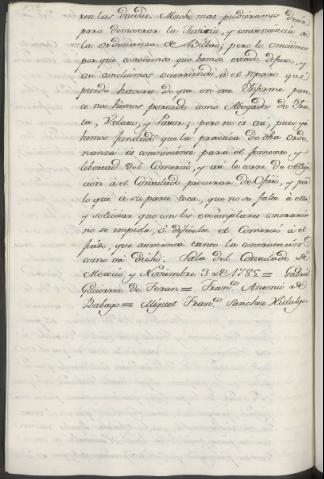 ren las dudas. Mucho mas pudieramos decir
para demostrar la Justicia, y conveniencia de
la ordenanza de Bilbao; pero lo omitimos
por que concevimos que hemos exedido, y
asi concluimos ocurriendo à el reparo que
puede hacerse de que en este Informe pare-
ce nos hemos portado como Abogados de
Velasco, y ; pero no es asi, pues ya
hemos fundado que la practica de dha Orde-
nanza es conveniente para el fomento, y
livertad del Comercio, y asi le corre de obliga-
cion à el Consulado procurar de Oficio, y por
lo que à su parte toca, que no se falte à ella,
y solicitar que con los exemplares contrarios
no se impida, ò dificulte el Comercio à el
fiado, que aumenta tanto la contratacion
como và dicho. Sala del Consulado de
Mexico y Noviembre 3 de 1785 = Gabriel
Gutierrez de Teran = Franco. Antonio de
Rabago = Miguel Franco. Sanchez Hidalgo